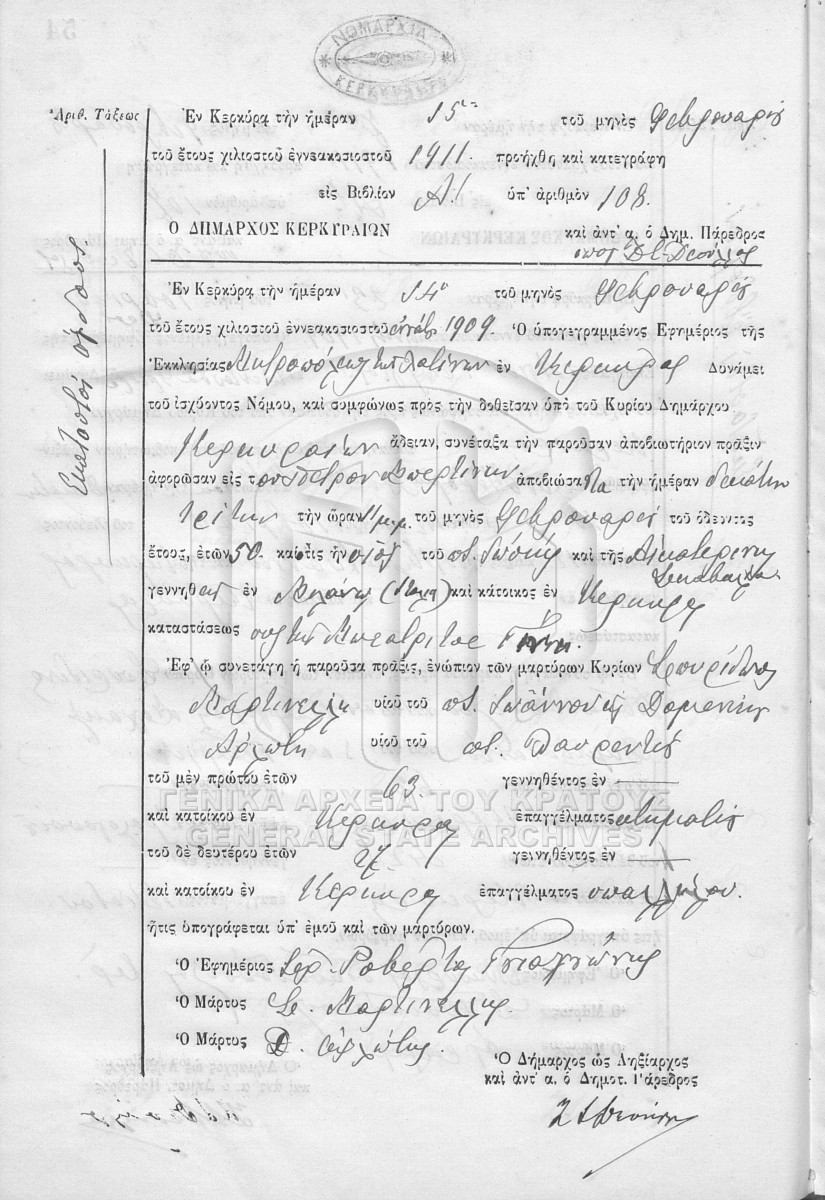 ΝΟΜΑΡΧΙΑ
ΚΕΡΚΥΡΑΣ
Ἀριθ. Τάξεως
Ἐν Κερκύρᾳ τὴν ἡμέραν 15 τοῦ μηνὸς Φεβρουαρίου
τοῦ ἔτους χιλιοστοῦ ἐννεακοσιοστοῦ 1911. προήχθη καὶ κατεγράφη
εἰς Βιβλίον Α΄. ὑπ' ἀριθμὸν 108.
Ο ΔΗΜΑΡΧΟΣ ΚΕΡΚΥΡΑΙΩΝ καὶ ἀντ' α. ὁ Δημ. Πάρεδρος
Ἑκατοστοῦ ὀγδόου
Ἐν Κερκύρᾳ τὴν ἡμέραν 14 τοῦ μηνὸς Φεβρουαρίου
τοῦ ἔτους χιλιοστοῦ ἐννεακοσιοστοῦ ἐνάτου 1909. Ὁ ὑπογεγραμμένος Ἐφημέριος τῆς
Ἐκκλησίας Μητροπόλεως τῶν Λατίνων ἐν Κερκύρᾳ Δυνάμει
τοῦ ἰσχύοντος Νόμου, καὶ συμφώνως πρὸς τὴν δοθεῖσαν ὑπὸ τοῦ Κυρίου Δημάρχου
Κερκυραίων ἄδειαν, συνέταξα τὴν παροῦσαν ἀποβιωτήριον πρᾶξιν
ἀφορῶσαν εἰς τὸν Πέτρον ἀποβιώσαντα τὴν ἡμέραν δεκάτην
τρίτην τὴν ὥραν 11 μ.μ. τοῦ μηνὸς Φεβρουαρίου τοῦ ὁδεύοντος
ἔτους, ἐτῶν 50. καὶ ὅστις ἦν υἱὸς τοῦ ποτ. καὶ τῆς Αἰκατερίνης
γεννηθεὶς ἐν Μιλάνῳ (Ἰταλίᾳ) καὶ κάτοικος ἐν Κερκύρᾳ
καταστάσεως
Ἐφ' ᾧ συνετάγη ἡ παροῦσα πρᾶξις, ἐνώπιον τῶν μαρτύρων Κυρίων Σπυρίδωνος
Μαρτινέλλη υἱοῦ τοῦ ποτ. Ἰωάννου καὶ Δομενίκου
υἱοῦ τοῦ ποτ. Λαυρεντίου
τοῦ μὲν πρώτου ἐτῶν 63. γεννηθέντος ἐν
ΓΕΝΙΚΑ ΑΡΧΕΙΑ ΤΟΥ ΚΡΑΤΟΥΣ
καὶ κατοίκου ἐν Κερκύρᾳ ἐπαγγέλματος κτηματίου
GENERAL STATE ARCHIVES
τοῦ δὲ δευτέρου ἐτῶν γεννηθέντος ἐν
καὶ κατοίκου ἐν Κερκύρᾳ ἐπαγγέλματος ὑπαλλήλου.
ἥτις ὑπογράφεται ὑπ' ἐμοῦ καὶ τῶν μαρτύρων.
Ὁ Ἐφημέριος
Ὁ Μάρτυς Σ. Μαρτινέλλης.
Ὁ Μάρτυς Δ.
Ὁ Δήμαρχος ὡς Ληξίαρχος
καὶ ἀντ' α. ὁ Δημοτ. Πάρεδρος